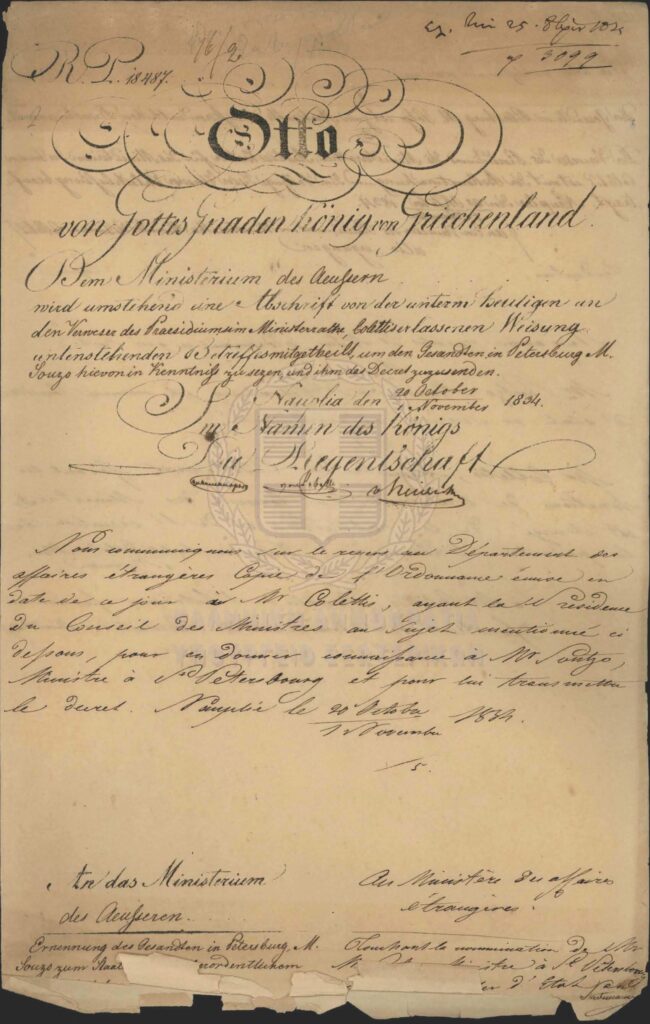 R. P. 18487.
16/2
25. 1834
3099
Otto
von Gottes Gnaden König von Griechenland.
Dem Ministerium des Aeussern
wird umstehend eine Abschrift von der unterm heutigen an
den Verweser des Praesidiums im Ministerrathe, Colettis erlassenen Weisung
untenstehenden Betreffs mitgetheilt, um den Gesandten in Petersburg M.
Souzo hievon in Kenntniß zu sezen, und ihm das Decret zuzusenden.
Nauplia den 20 October / 1 November 1834.
Im Namen des Königs
Die Regentschaft
Nous communiquons sur le revers au Département des
affaires étrangères Copie de l'Ordonnance émise en
date de ce jour à Mr Colettis, ayant la Présidence
du Conseil des Ministres au Sujet mentionné ci
dessous, pour en donner connaissance à Mr Soutzo,
Ministre à St Petersbourg et pour lui transmettre
le decret. Nauplie le 20 Octobre / 1 Novembre 1834.
An das Ministerium
des Aeusseren.
Au Ministère des affaires
étrangères.
Ernennung des Gesandten in Petersburg, M.
Souzo zum Staa
rordentlichem
Touchant la nomination de Mr
ministre à St Petersbourg
d'Etat